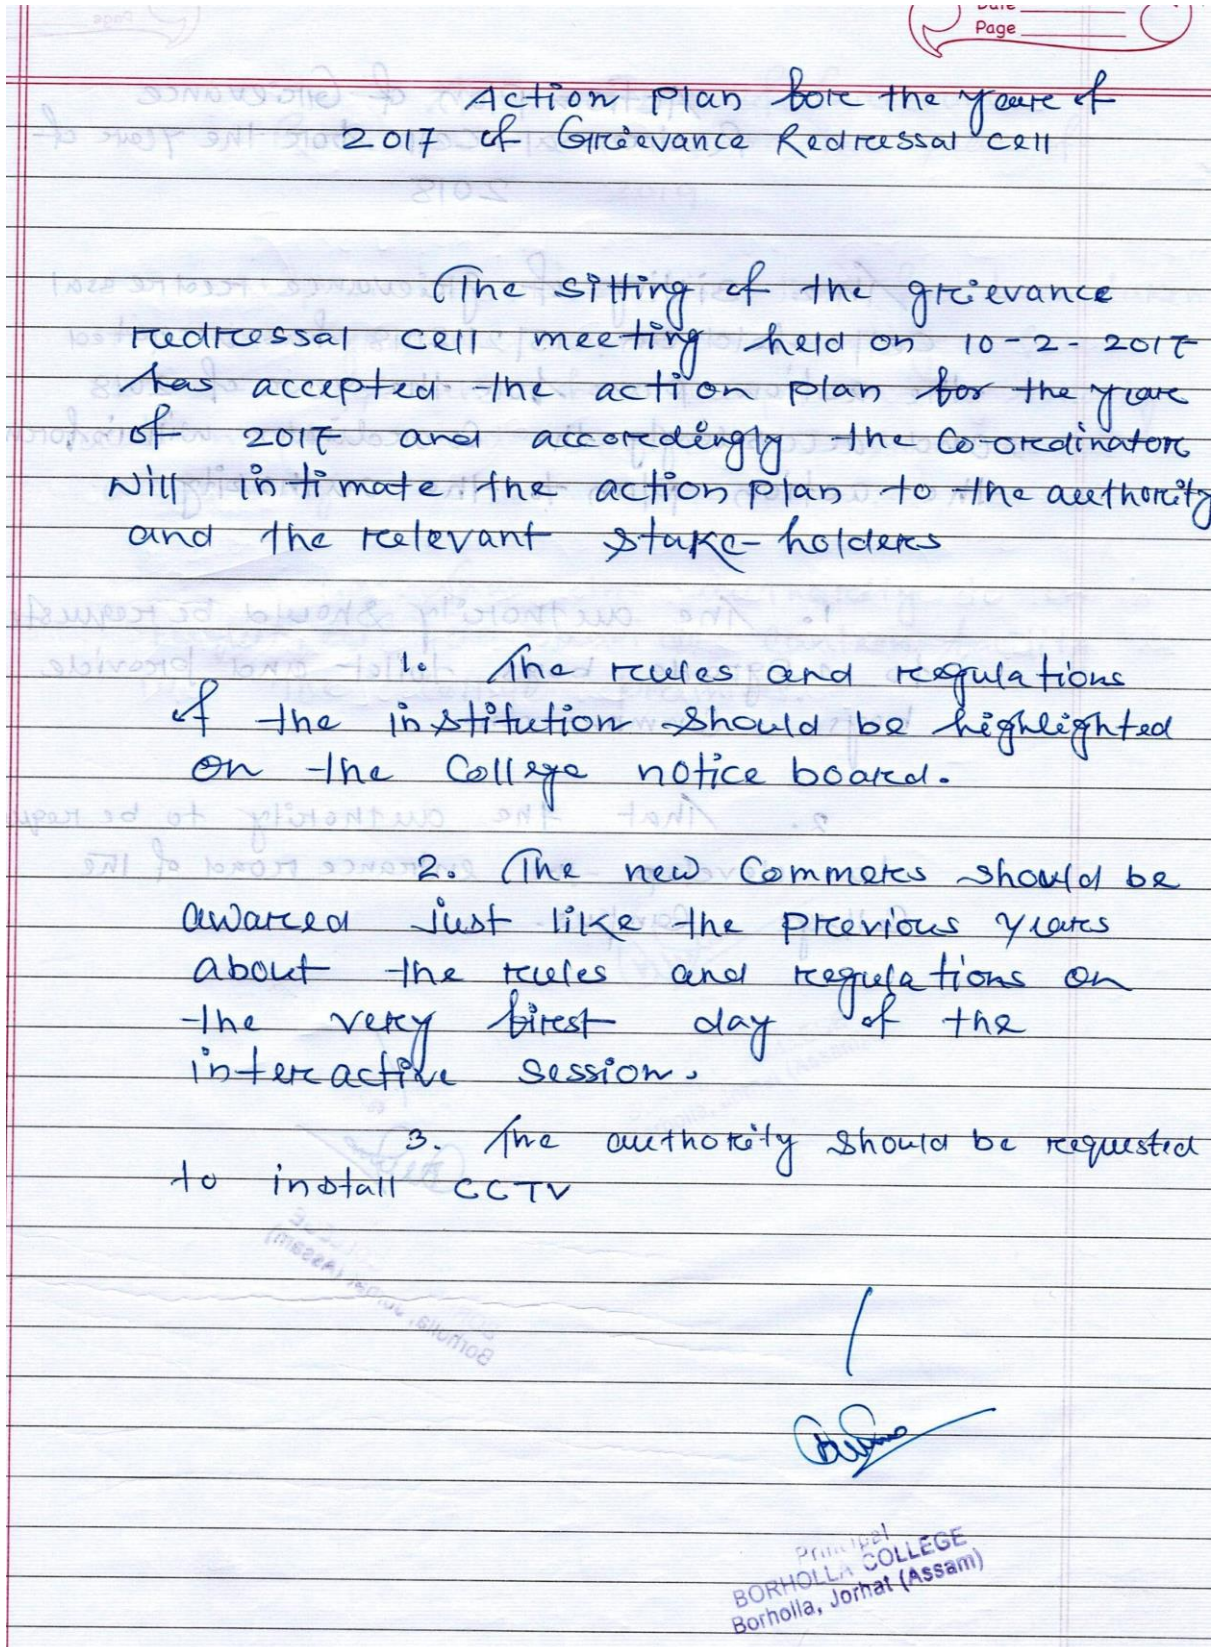 Date
Page
Action plan fore the year of
2017 of Grievance Redressal cell
The sitting of the grievance
redressal cell meeting held on 10-2-2017
has accepted the action plan for the year
of 2017 and accordingly the Co-ordinator
will intimate the action plan to the authority
and the relevant stake-holders
1. The rules and regulations
of the institution should be highlighted
on the College notice board.
2. The new Commers should be
awared just like the previous years
about the rules and regulations on
the very first day of the
interactive session.
3. The authority should be requested
to install CCTV
Principal
BORHOLLA COLLEGE
Borholla, Jorhat (Assam)